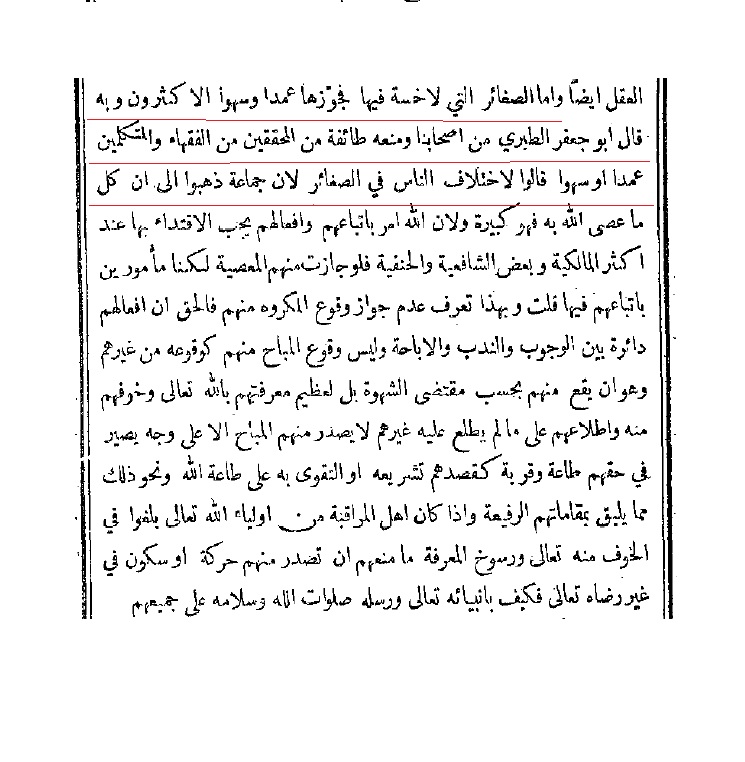 العقل ايضا واما الصغائر التي لاخسة فيها فجوّزها عمدا وسهوا الاكثرون وبه
قال ابو جعفر الطبري من اصحابنا ومنعه طائفة من المحققين من الفقهاء والمتكلمين
عمدا اوسهوا قالوا لاختلاف الناس في الصغائر لان جماعة ذهبوا الى ان كل
ما عصى الله به فهو كبيرة ولان الله امر باتباعهم وافعالهم يجب الاقتداء بها عند
اكثر المالكية وبعض الشافعية والحنفية فلوجازت منهم المعصية لكنا مأمورين
باتباعهم فيها قلت وبهذا تعرف عدم جواز وقوع المكروه منهم فالحق ان افعالهم
دائرة بين الوجوب والندب والاباحة وليس وقوع المباح منهم كوقوعه من غيرهم
وهو ان يقع منهم بحسب مقتضى الشهوة بل لعظيم معرفتهم بالله تعالى وخوفهم
منه واطلاعهم على مالم يطلع عليه غيرهم لايصدر منهم المباح الا على وجه يصير
في حقهم طاعة وقربة كقصدهم تشريعه او التقوى به على طاعة الله ونحو ذلك
مما يليق بمقاماتهم الرفيعة واذا كان اهل المراقبة من اولياء الله تعالى بلغوا في
الخوف منه تعالى ورسوخ المعرفة مامنعهم ان تصدر منهم حركة او سكون في
غير رضاه تعالى فكيف بانبيائه تعالى ورسله صلوات الله وسلامه على جميعهم